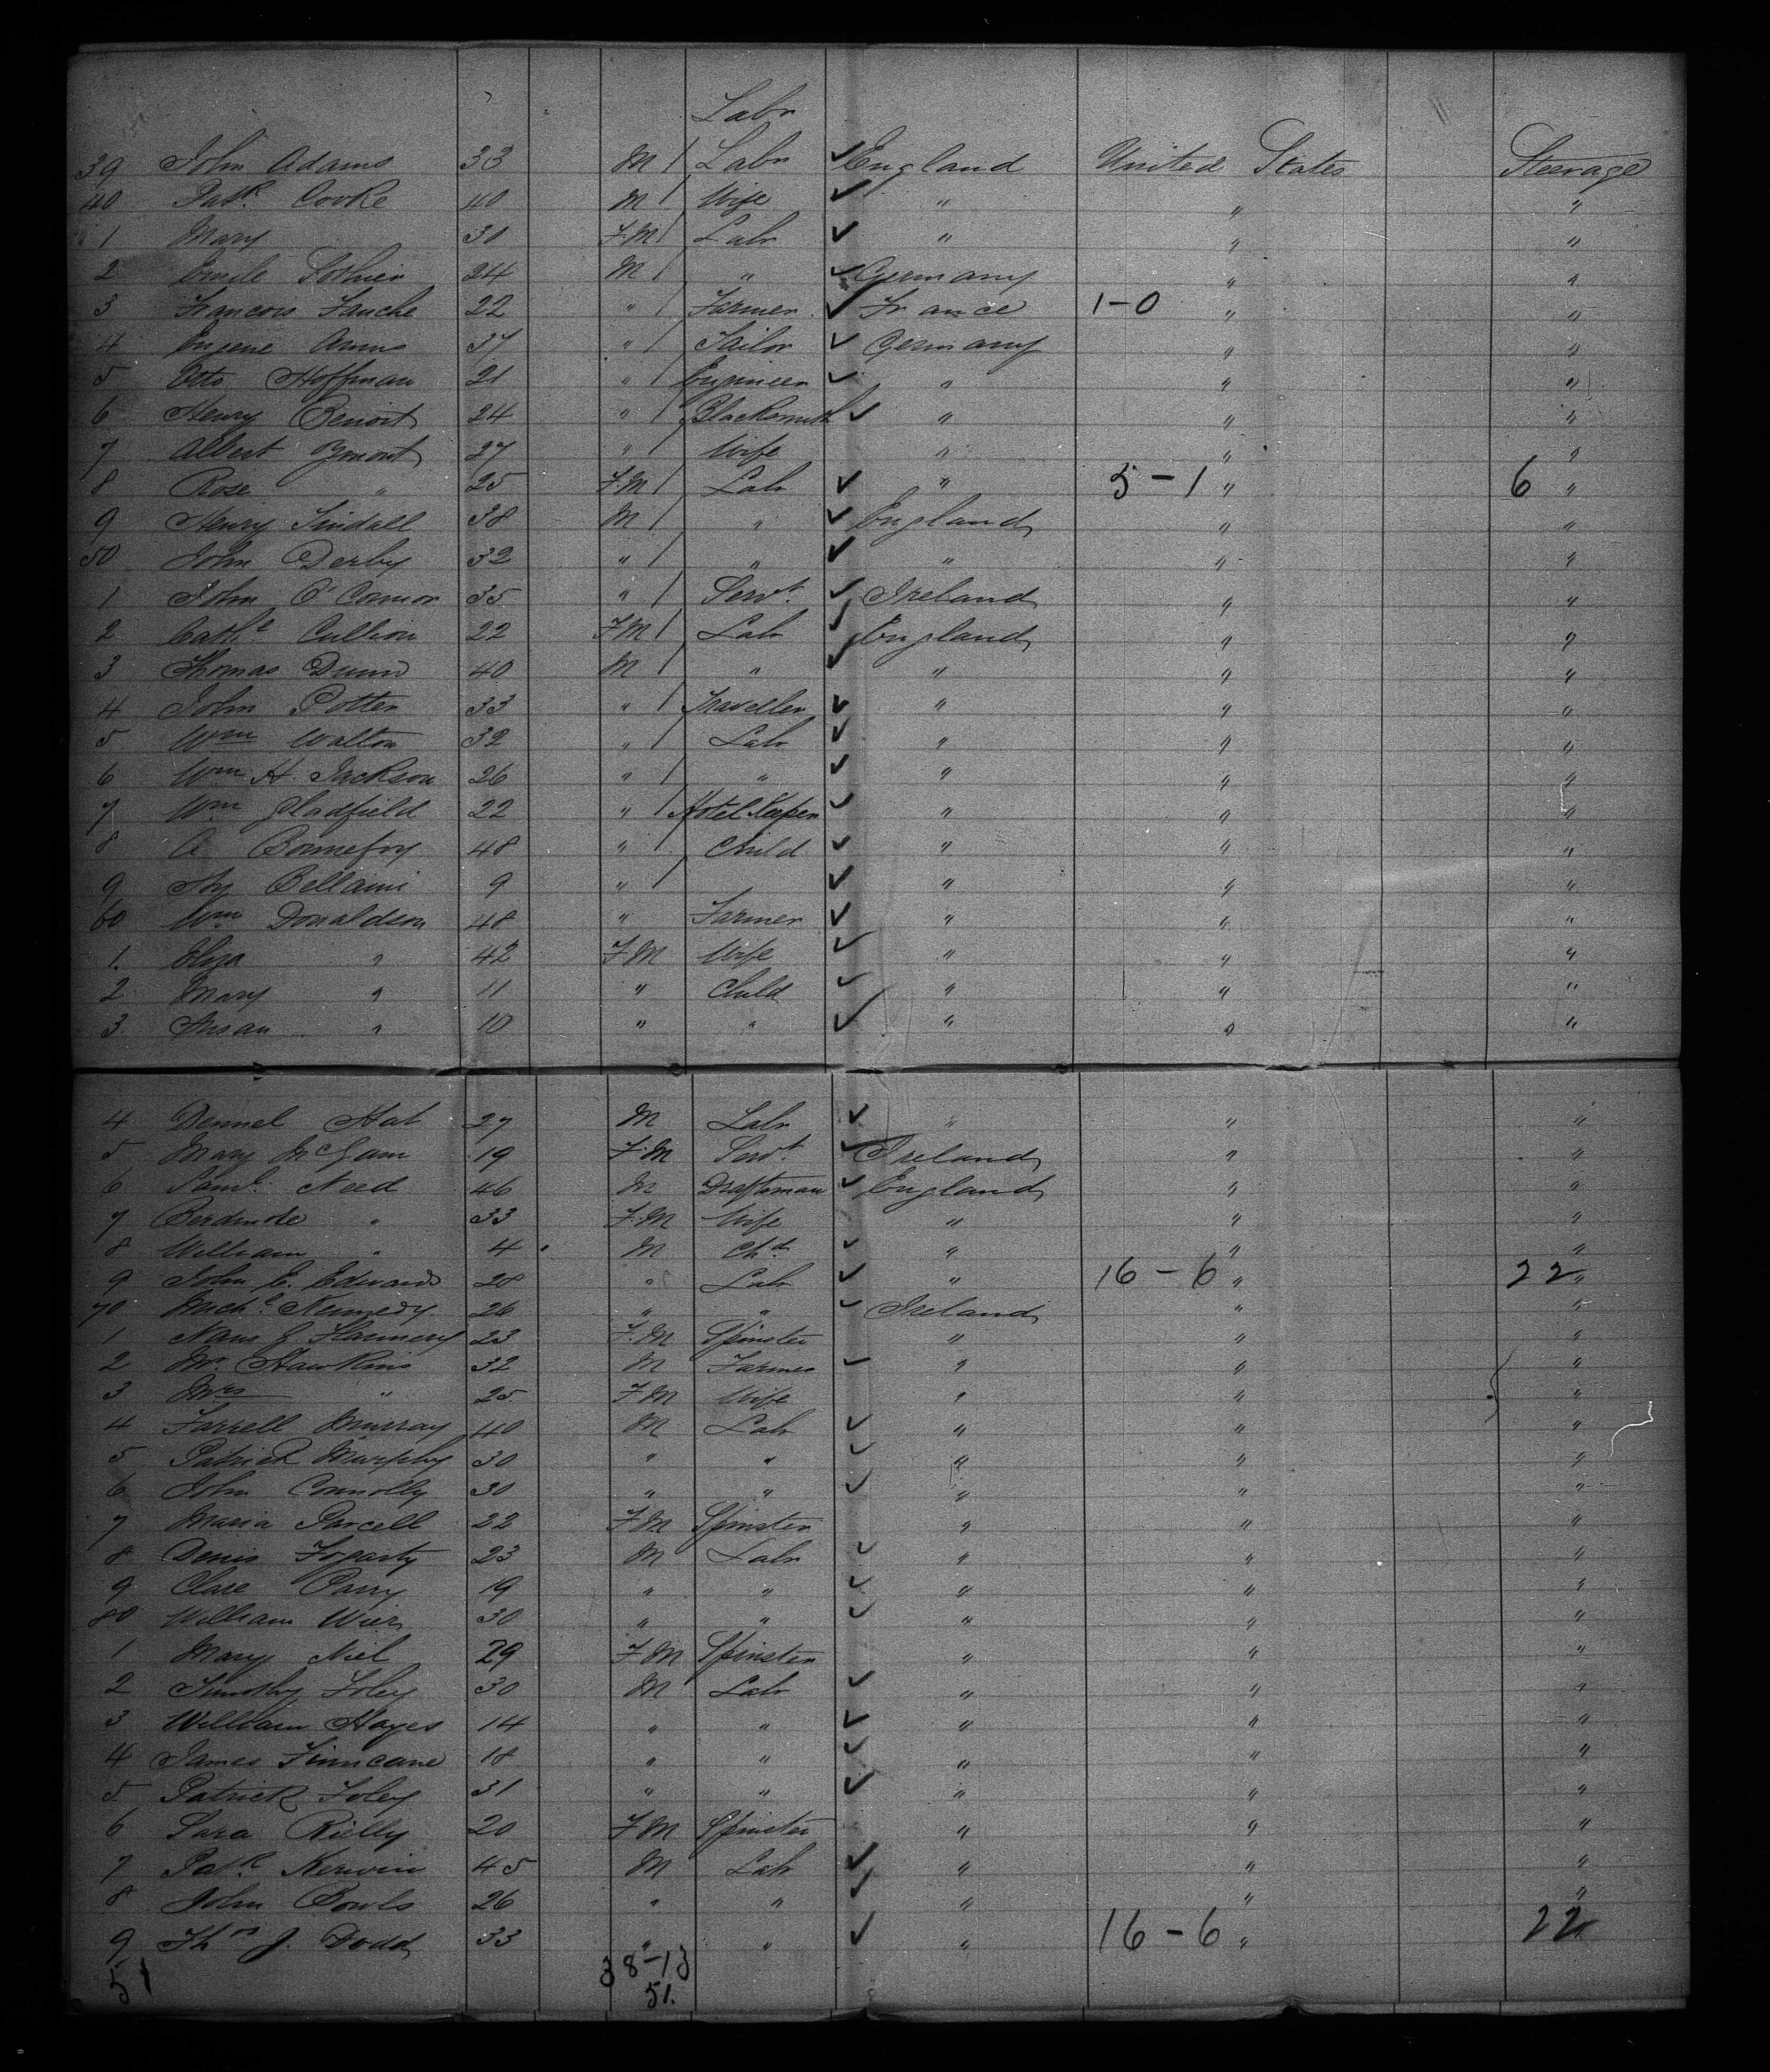 Labr
39 John Adams 33 M Labr England United States Steerage
40 Patk. Cooke 40 M Wife " " "
1 Mary 30 F.M Labr " " "
2 Emile 24 M " Germany " "
3 Francois Fauche 22 " Farmer France 1-0 " "
4 Eugene 37 " Tailor Germany " "
5 Otto Hoffman 21 " Engineer " " "
6 Henry Benoit 24 " Blacksmith " " "
7 Albert 27 " Wife " " "
8 Rose " 25 F.M Labr " 5-1 " 6 "
9 Henry Tindall 38 M " England " "
50 John Derby 32 " " " " "
1 John O'Connor 35 " Servt. Ireland " "
2 Cathe 22 F.M Labr England " "
3 Thomas Dunn 40 M " " " "
4 John Potter 33 " Traveller " " "
5 Wm Walton 32 " Labr " " "
6 Wm H. Jackson 26 " " " " "
7 Wm Gladfield 22 " Hotel Keeper " " "
8 A Bonnefoy 48 " Child " " "
9 Hy Bellami 9 " " " "
60 Wm Donaldson 48 " Farmer " " "
1. Eliza " 42 F.M Wife " " "
2 Mary " 11 " Child " " "
3 Susan " 10 " " " " "
4 27 M Labr " " "
5 Mary McGann 19 F.M Servt Ireland " "
6 Saml. Need 46 M Draftsman England " "
7 " 33 F.M Wife " " "
8 William " 4 M Chd " " "
9 John E. Edwards 28 " Labr " 16-6 " 22 "
70 Michl. Kennedy 26 " " Ireland " "
1 J. Flannery 23 F.M Spinster " " "
2 Mr Hawkins 32 M Farmer " " "
3 Mrs " 25. F.M Wife " " "
4 Farrell Murray 40 M Labr " " "
5 Patrick Murphy 30 " " " " "
6 John Connolly 30 " " " " "
7 Maria Parcell 22 F.M Spinster " " "
8 Denis Fogarty 23 M Labr " " "
9 Clare Parry 19 " " " " "
80 William Wier 30 " " " " "
1 Mary Niel 29 F.M Spinster " " "
2 Timothy Foley 30 M Labr " " "
3 William Hayes 14 " " " " "
4 James Finucane 18 " " " " "
5. Patrick Foley 31 " " " " "
6 Sara Rielly 20 F.M Spinster " " "
7 Patk Kerwin 45 M Labr " " "
8 John Bowls 26 " " " " "
9 Thos J. Dodd 33 " " " 16-6 " 22
51 38-13
51.